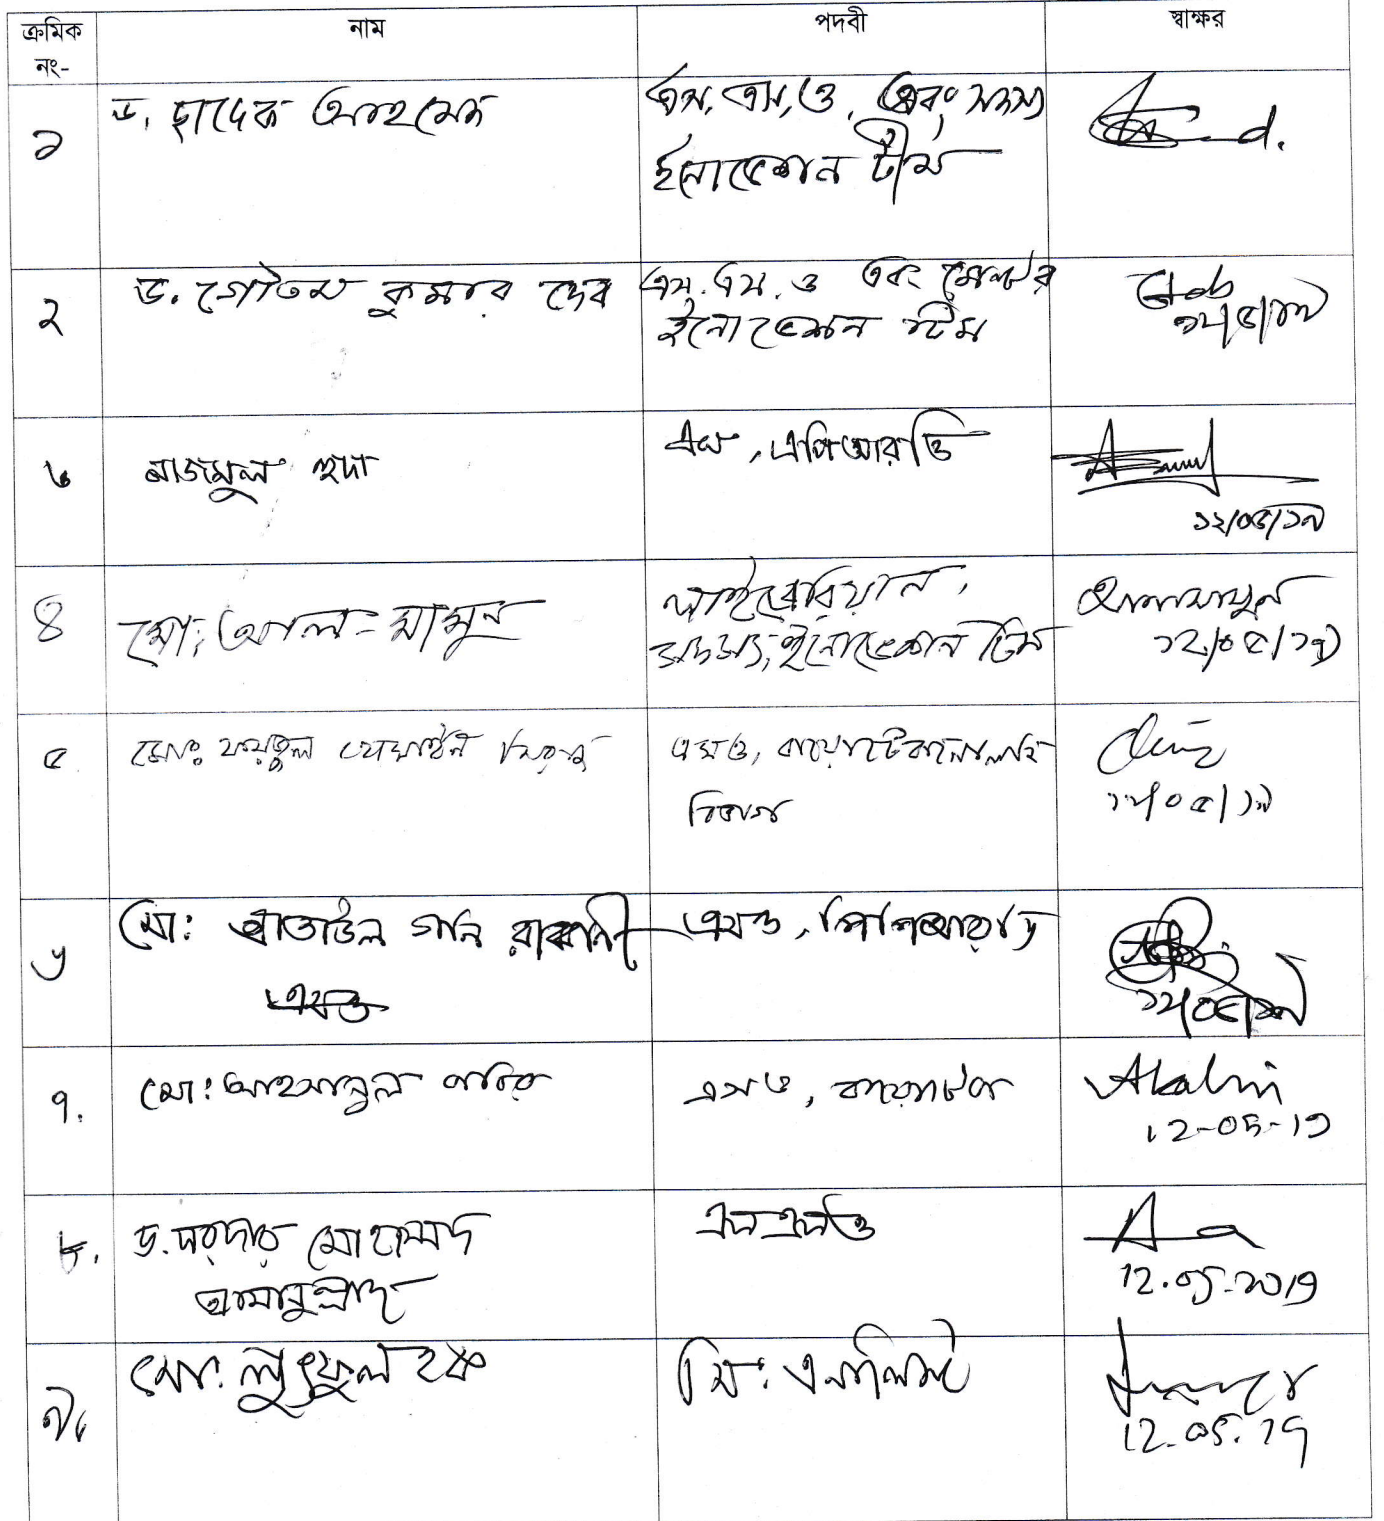 ক্রমিক নং- নাম পদবী স্বাক্ষর
১ ড. ছাদেক আহমেদ এস. এস. ও. এবং সদস্য
ইনোভেশন টীম
২ ড. গৌতম কুমার দেব এস. এস. ও এবং মেম্বার
ইনোভেশন টিম
১২/৫/১৯
৩ নাজমুল হুদা এস, এপিআরডি
১২/০৫/১৯
৪ মো: আল-মামুন লাইব্রেরিয়ান,
সদস্য, ইনোভেশন টিম
আলমামুন
১২/০৫/১৯
৫ মোঃ এসও, বায়োটেকনোলজি
বিভাগ
১২/০৫/১৯
৬ মো: আতাউল গনি রাব্বানী এসও, পিপিআরডি
এসও
১২/০৫/১৯
৭. মো: আহসানুল কবির এসও, বায়োটেক
Akabir
12-05-19
৮. ড. সরদার মোহাম্মদ
আমানুল্লাহ
এসএসও
12.05.2019
৯. মো. লুৎফুল হক সি. এনালিস্ট
12.05.19